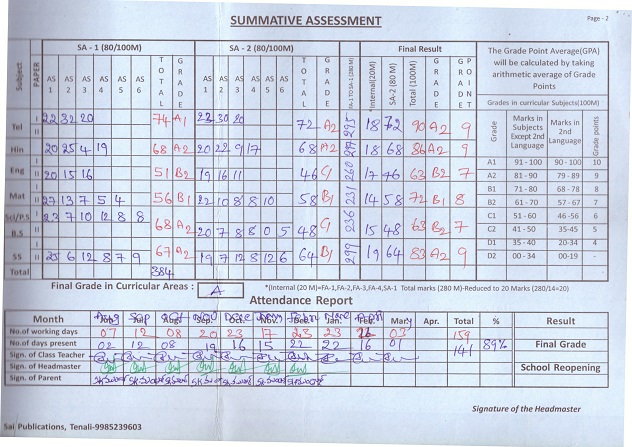 SUMMATIVE ASSESSMENT
Page - 2
Subject PAPER SA - 1 (80/100M) SA - 2 (80/100M) FA-1 TO SA-1 (280 M) Final Result
AS 1 AS 2 AS 3 AS 4 AS 5 AS 6 TOTAL GRADE AS 1 AS 2 AS 3 AS 4 AS 5 AS 6 TOTAL GRADE *Internal(20M) SA-2 (80 M) Total (100M) GRADE GRADE POINT
Tel I II 22 32 20 74 A1 22 30 20 72 A2 295 18 72 90 A2 9
Hin I II 20 25 4 19 68 A2 20 22 9 17 68 A2 18 68 86 A2 9
Eng I II 20 15 16 51 B2 19 16 11 46 260 17 46 63 B2 7
Mat I II 27 13 7 5 4 56 B1 22 10 8 8 10 58 B1 231 14 58 72 B1 8
Sci/P.S I 7 10 12 8 8
B.S II 68 A2 20 7 8 8 0 5 48 236 15 48 63 B2 7
SS I II 25 6 12 8 7 9 67 A2 19 7 12 8 12 6 64 B1 299 19 64 83 A2 9
Total 384
The Grade Point Average(GPA)
will be calculated by taking
arithmetic average of Grade
Points
Grades in curricular Subjects(100M)
Grade Marks in Subjects Except 2nd Language Marks in 2nd Language Grade points
A1 91 - 100 90 - 100 10
A2 81 - 90 79 - 89 9
B1 71 - 80 68 - 78 8
B2 61 - 70 57 - 67 7
C1 51 - 60 46 - 56 6
C2 41 - 50 35 - 45 5
D1 35 - 40 20-34 4
D2 00 - 34 00 -19 -
Final Grade in Curricular Areas : A
*(Internal (20 M)=FA-1,FA-2,FA-3,FA-4,SA-1 Total marks (280 M)-Reduced to 20 Marks (280/14=20)
Attendance Report
Month Aug Sep Oct Nov Dec Jan. Feb. Mary Apr. Total % Result
No.of working days 07 12 08 20 23 17 23 23 03 159
No.of days present 02 12 08 19 16 15 22 22 16 01 141 89% Final Grade
Sign. of Class Teacher
Sign. of Headmaster School Reopening
Sign. of Parent
Signature of the Headmaster
Sai Publications, Tenali-9985239603